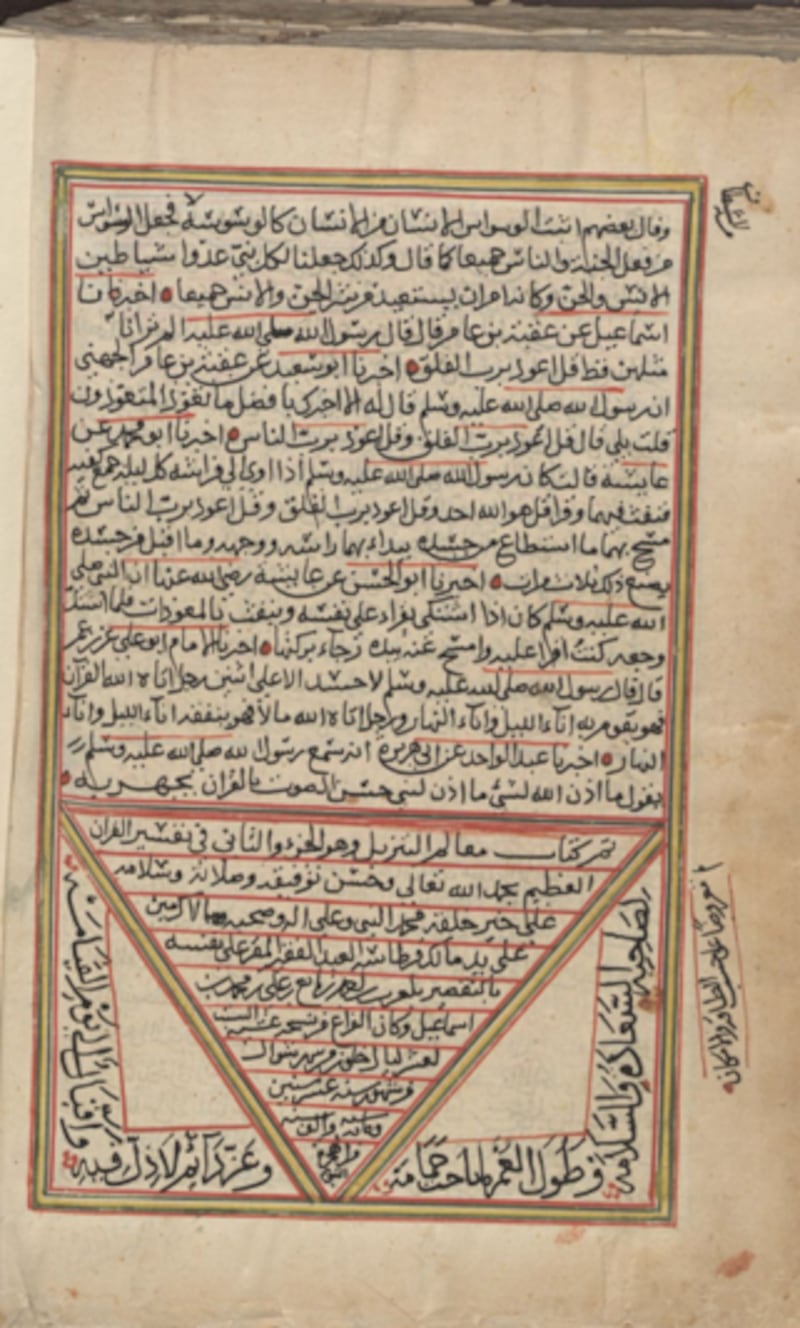 وقال بعضهم اثبت الوسواس للانسان من الانسان كالوسوسة فجعل الوسواس
من فعل الجنة والناس جميعا كما قال وكذلك جعلنا لكل نبي عدوا شياطين
الانس والجن وكانه امر ان يستعيذ من شر الجن والانس جميعا اخبرنا
اسماعيل عن عقبة بن عامر قال قال رسول الله صلى الله عليه الم تر اياتا
مثلهن قط قل اعوذ برب الفلق اخبرنا ابو سعيد عن عقبة بن عامر الجهني
ان رسول الله صلى الله عليه وسلم قال له الا اخبرك بافضل ما تعوذ المتعوذون
قلت بلى قال قل اعوذ برب الفلق وقل اعوذ برب الناس اخبرنا ابو محمد عن
عايشة قالت كان رسول الله صلى الله عليه وسلم اذا اوى الى فراشه كل ليلة جمع كفيه
فنفث فيهما وقرا قل هو الله احد وقل اعوذ برب الفلق وقل اعوذ برب الناس ثم
مسح بهما ما استطاع من جسده يبداء بهما راسه ووجهه وما اقبل من جسده
يصنع ذلك ثلاث مرات اخبرنا ابو الحسن عن عايشة رضي الله عنها ان النبي صلى
الله عليه وسلم كان اذا اشتكى يقراء على نفسه وينفث بالمعوذات فلما اشتد
وجعه كنت اقرا عليه وامسح عنه بيده رجاء بركتها اخبرنا الامام ابو علي
قال قال رسول الله صلى الله عليه وسلم لا حسد الا على اثنين رجل اتاه الله القرآن
فهو يقوم به اناء الليل واناء النهار ورجل اتاه الله مالا فهو ينفقه اناء الليل واناء
النهار اخبرنا عبد الواحد عن ابي هريرة انه سمع رسول الله صلى الله عليه وسلم
يقول ما اذن الله لشيء ما اذن لنبي حسن الصوت بالقرآن يجهر به
تم كتاب معالم التنزيل وهو الجزء الثاني في تفسير القران
العظيم بحمد الله تعالى وحسن توفيقه وصلاته وسلامه
على خير خلقه محمد النبي وعلى اله وصحبه الاكرمين
على يد مالك قرطاسه العبد الفقير المقر على نفسه
بالتقصير علي بن محمد بن
اسماعيل وكان الفراغ من نسخه
شوال
من شهور سنة عشرين
ومائة والف سنة
لصاحبه السعادة والسلامة
وطول العمر ما ناحت حمامة
وعز دائم لا ذل فيه
واقبال الى يوم القيامة